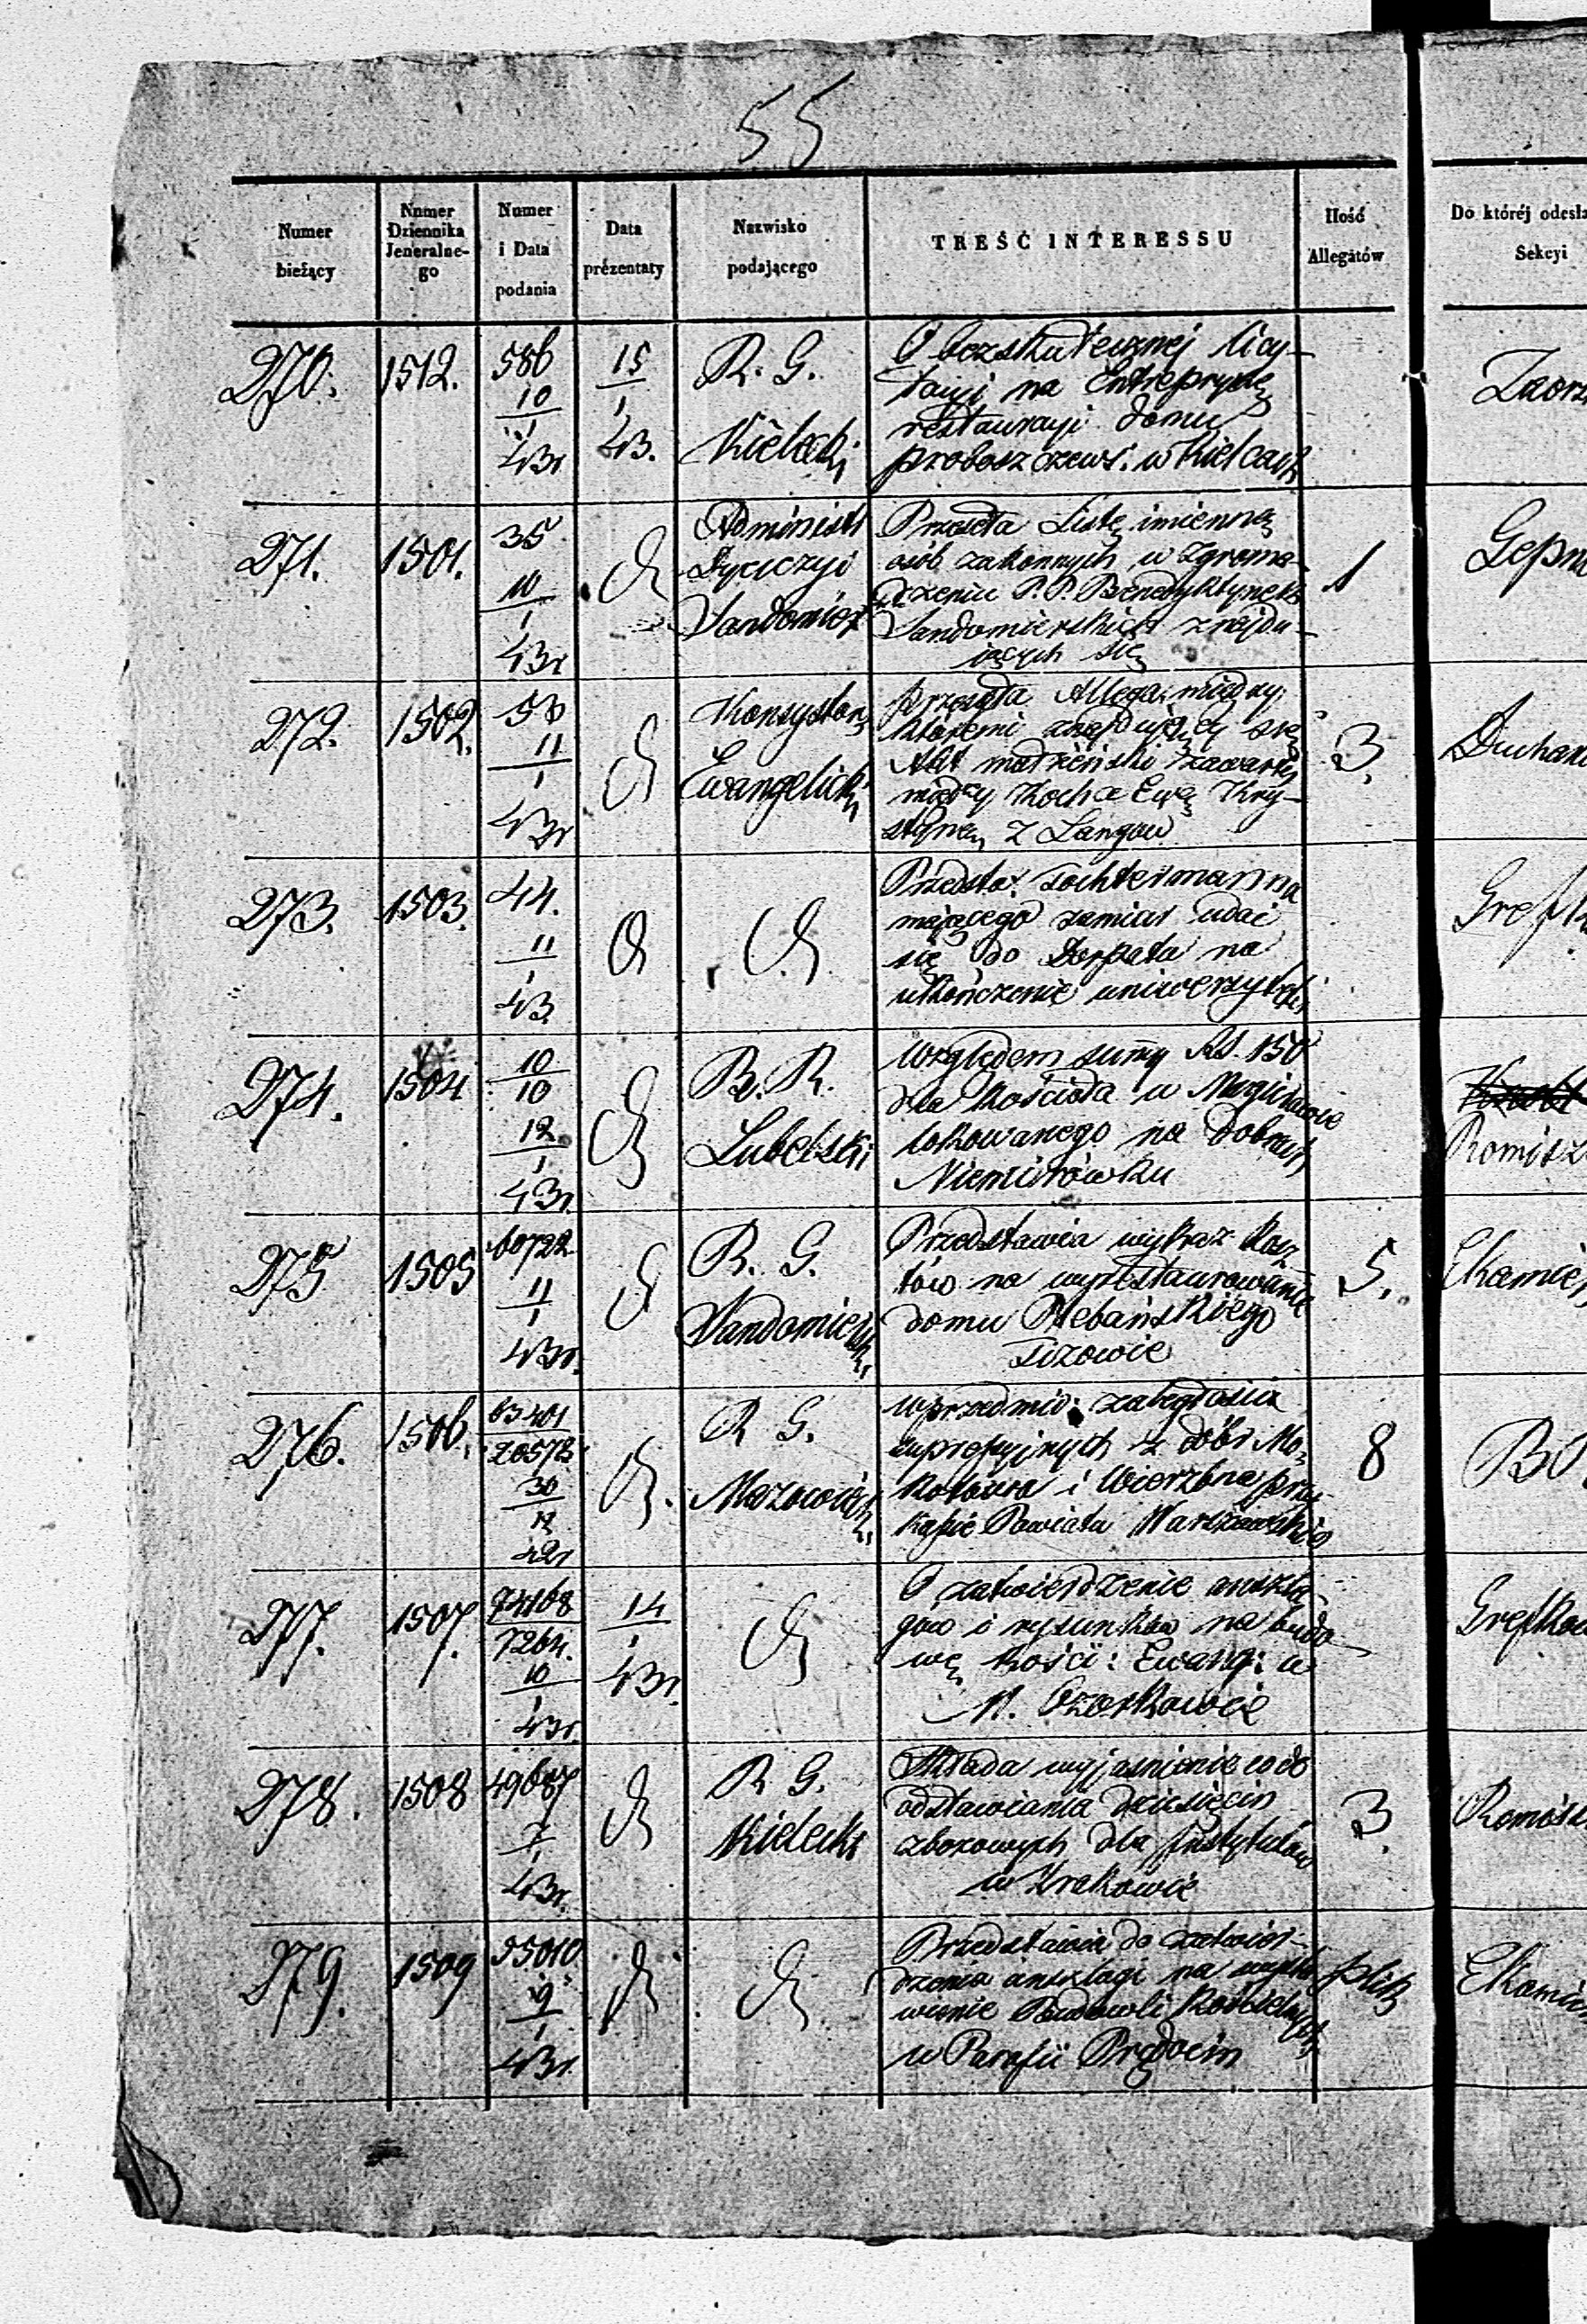 55
Numer bieżący
Numer Dziennika Jeneralnego
Numer i Data podania
Data prezentaty
Nazwisko podającego
TREŚĆ INTERESSU
Ilość Allegatów
Do któréj odesła
Sekcyi
270. 1512. 586 10/1 43r 15/1 43. R. G. Kielecki
O bezskutecznej licy-
tacyi na Entrepryzę
restauracyi domu
proboszczows. w Kielcach
271. 1501. 35 10/1 43r d Administr Dyeczyi Sandomier
Przesyła Listę imienną
osób zakonnych w zgroma-
dzeniu P.P. Benedyktynek
Sandomierskich znajdu-
iących się
1
272. 1502. 50 11/1 43r d Konsystorz Ewangelicki
przesyła Allega: między
któremi znajdujący się
Akt małżeński zawarty
między Koch a Ewą Kry-
styną z Langów
3.
273. 1503. 44. 11/1 43. d d
Przedsta: Tochtermanna
mającego zamiar udać
się do Dorpatu na
ukończenie uniwersytetu
274. 1504 10/10 12/1 43r. d R. R. Lubelski
Względem sumy RS. 150
dla Kościoła w
lokowanego na dobrach
Niemirówku
275 1505 60722 11/1 43r. d R. G. Sandomierski
Przedstawia wykaz kosz-
tów na wyrestaurowanie
domu Plebańskiego
5.
276. 1506. 63401/20573 30/12 42r d. R G. Mazowiecki
w przedmio: zaległości
z dóbr Mo-
kotowa i Wierzbna przy
kasie Powiatu Warszawskie
8
277. 1507. 74168/7264. 10/1 43r. 14/1 43r. d
O zatwierdzenie anszla-
gow i rysunków na budo-
wę Kości: Ewang: w
M. Ozorkowie
278. 1508 49687 7/1 43r. d R G. Kielecki
Składa wyjaśnienie co do
odstawiania dziesięcin
zbożowych dla Instytutów
w Krakowie
3.
279. 1509 55010 9/1 43r. d d
Przedstawia do zatwier-
dzenia anszlagi na wysta
wienie Budowli Kościelnych
w Parafii Prędocin
plik